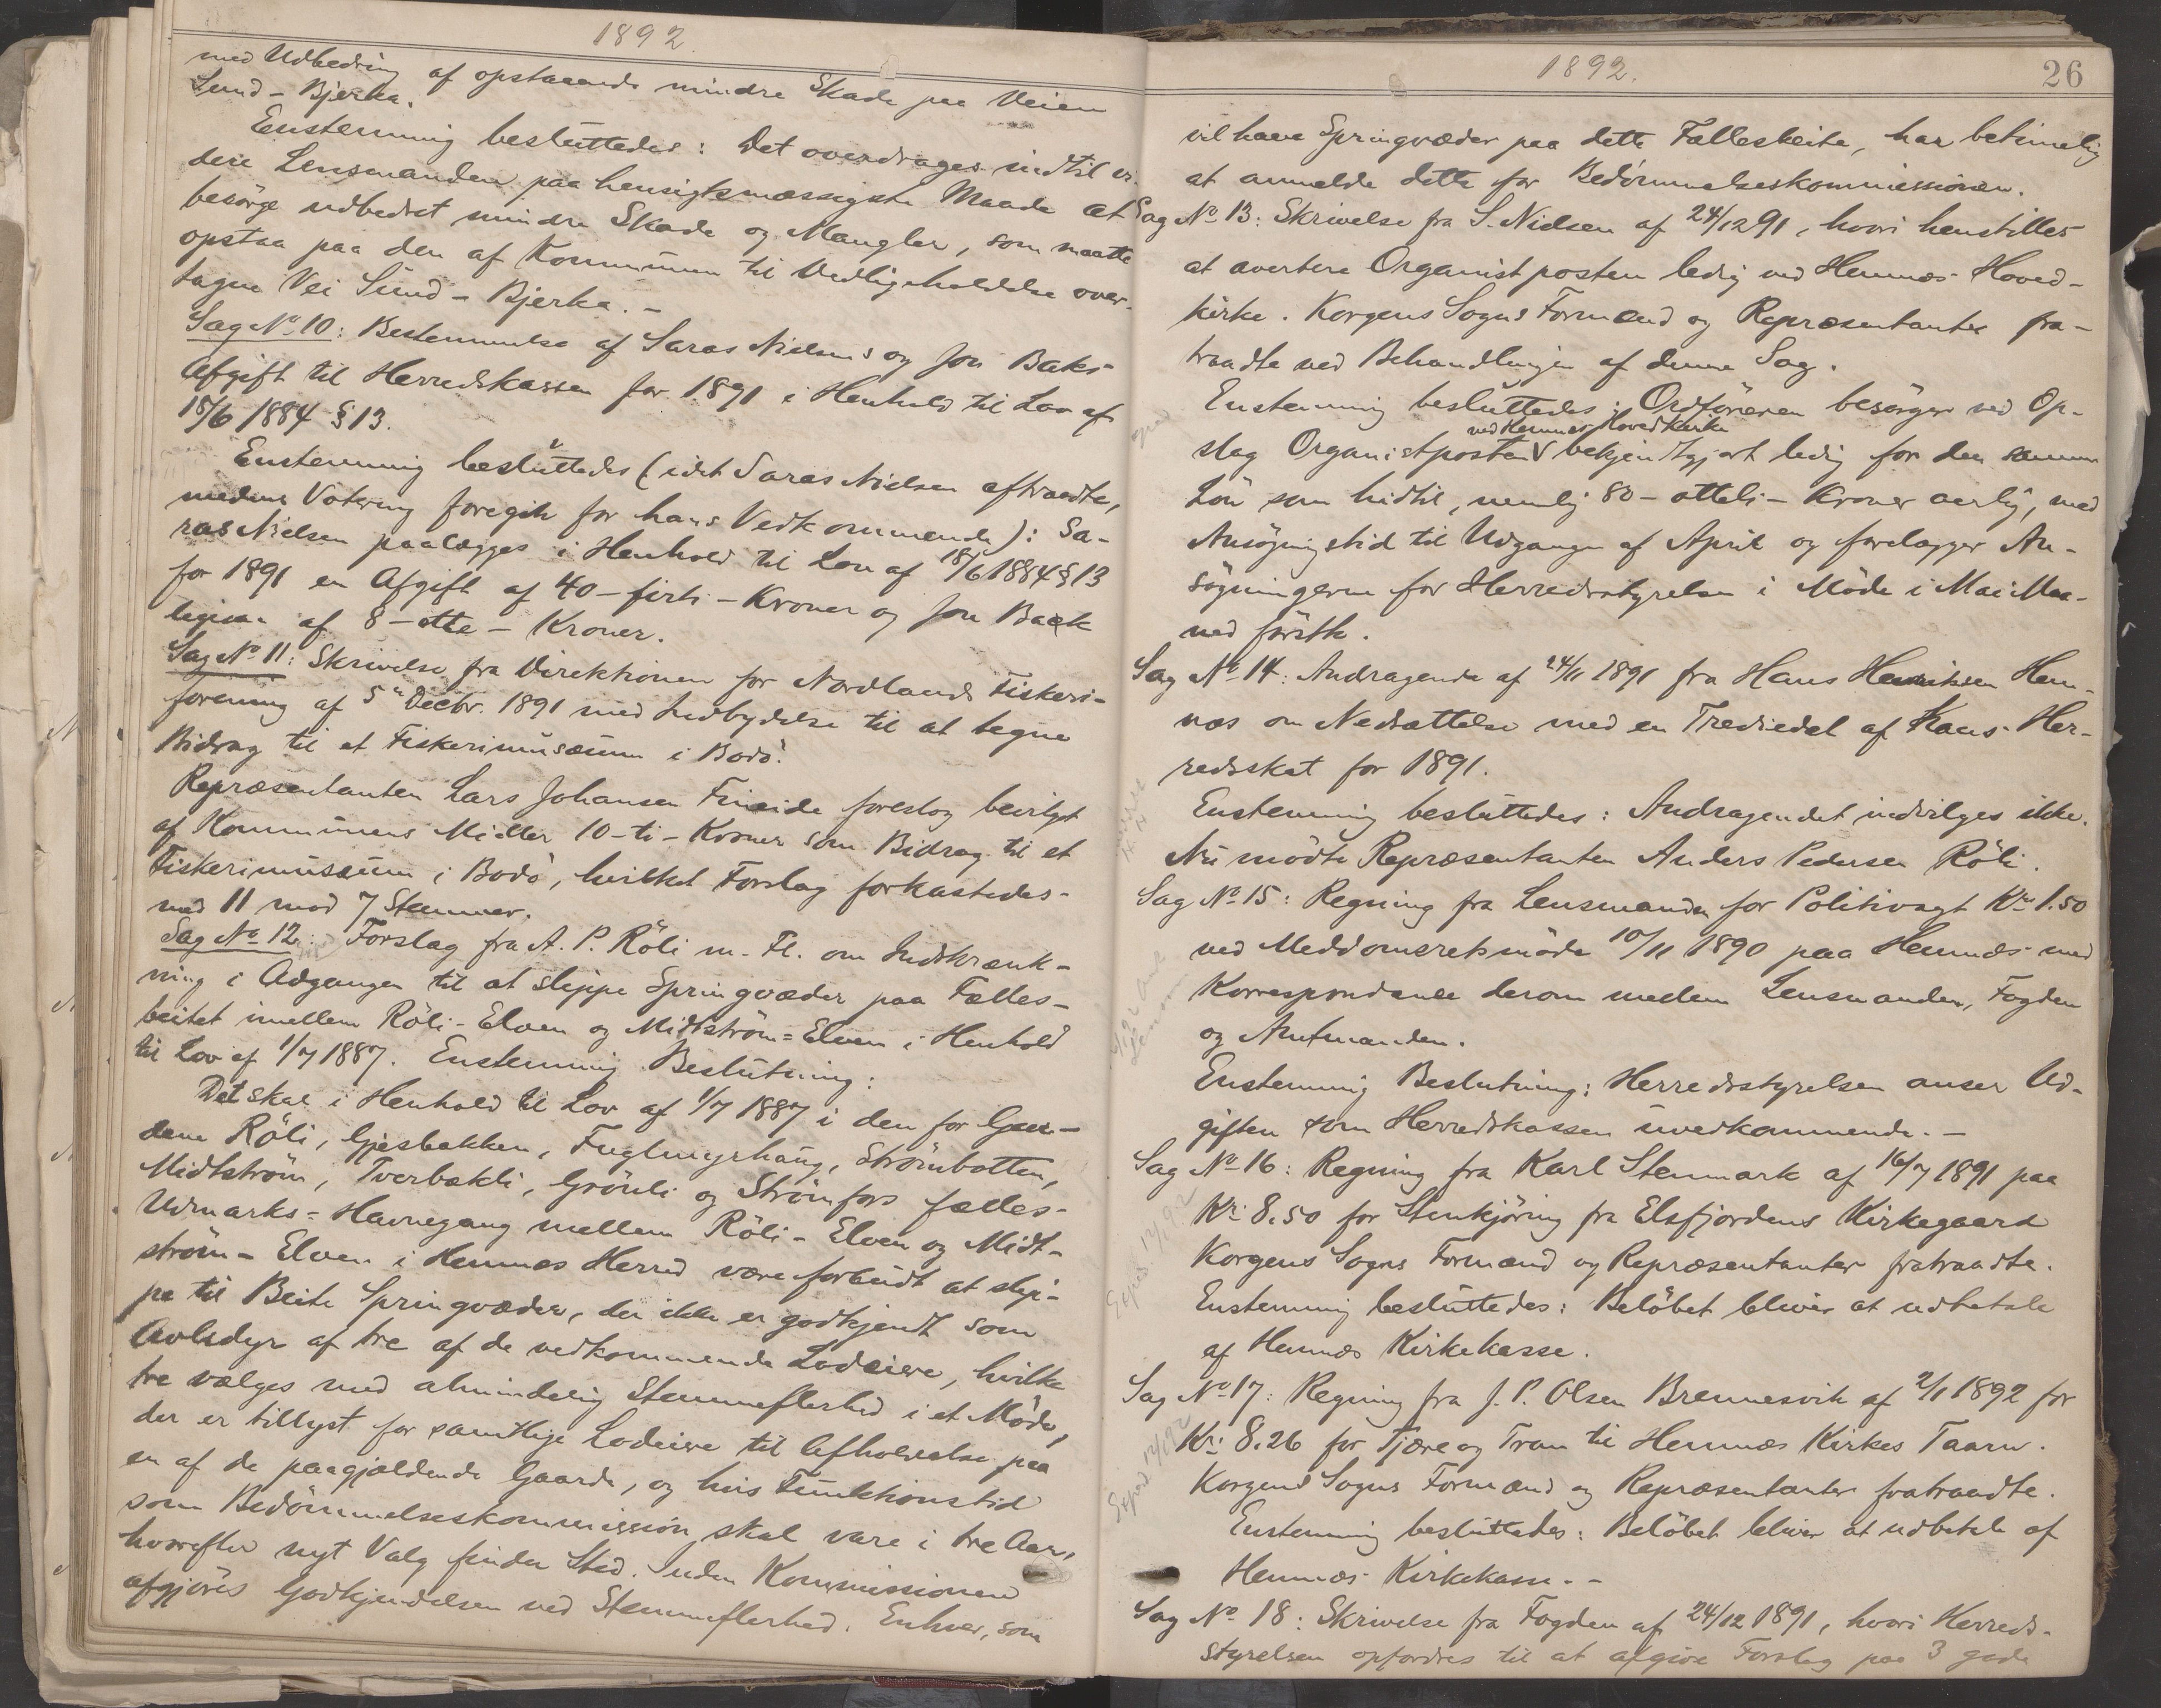 1892
med Udbedring af opstaaende mindre Skade paa Veien
Sund - Bjerka.
Enstemmig besluttedes: Det overdrages indtil vi-
dere Lensmanden paa hensigtsmæssigste Maade at
besørge udbedret mindre Skade og Mangler, som maatte
opstaa paa den af Kommunen til Vedligeholdelse over-
tagne Vei Sund - Bjerka. -
Sag No 10: Bestemmelse af Saras Nielsens og Jon Baks
Afgift til Herredskassen for 1891 i Henhold til Lov af
18/6 1884 § 13.
Enstemmig besluttedes (idet Saras Nielsen aftraadte,
medens Votering foregik for hans Vedkommende): Sa-
ras Nielsen paalægges i Henhold til Lov af 18/6 1884 § 13
for 1891 en Afgift af 40 - firti - Kroner og Jon Back
af 8 - otte - Kroner.
Sag No 11: Skrivelse fra Direktionen for Nordlands Fiskeri-
forening af 5te Decbr. 1891 med Indbydelse til at tegne
Bidrag til et Fiskerimusæum i Bodø.
Repræsentanten Lars Johansen Fineide foreslog bevilget
af Kommunens Midler 10 - ti - Kroner som Bidrag til et
Fiskerimusæum i Bodø, hvilket Forslag forkastedes
med 11 mod 7 Stemmer.
Sag No 12: Forslag fra A. P. Røli m. Fl. om Indskrænk-
ning i Adgangen til at slippe Springvæder paa Fælles-
beitet imellem Røli-Elven og Midtstrøm-Elven i Henhold
til Lov af 1/7 1887. Enstemmig Beslutning:
Det skal i Henhold til Lov af 1/7 1887 i den for Gaar-
dene Røli, Gjesbakken, Fuglmyrhaug, Strømbotten,
Midtstrøm, Tverbækli, Grønli og Strømfors fælles
Udmarks-Havnegang mellem Røli-Elven og Midt-
strøm-Elven i Hemnæs Herred være forbudt at slip-
pe til Beite Springvæder, der ikke er godkjendt som
Avlsdyr af tre af de vedkommende Lodeiere, hvilke
tre vælges med almindelig Stemmeflerhed i et Møde,
der er tillyst for samtlige Lodeiere til Afholdelse paa
en af de paagjældende Gaarde, og hvis Funktionstid
som Bedømmelseskommission skal vare i tre Aar,
hvorefter nyt Valg finder Sted. Inden Kommissionen
afgjøres Godkjendelsen ved Stemmeflerhed. Enhver, som
1892.
26
vil have Springvæder paa dette Fællesbeite, har betimelig
at anmelde dette for Bedømmelseskommissionen.
Sag No 13: Skrivelse fra S. Nielsen af 24/12 91, hvori henstilles
at avertere Organistposten ledig ved Hemnæs Hoved-
kirke. Korgens Sogns Formænd og Repræsentanter fra-
traadte ved Behandlingen af denne Sag.
Enstemmig besluttedes: Ordføreren besørger ved Op-
ved Hemnes Hovedkirke
slag Organistposten V bekjendtgjort ledig for den samme
Løn som hidtil, nemlig 80 - otteti - Kroner aarlig, med
Ansøgningstid til Udgangen af April og forelægger An-
søgningerne for Herredsstyrelsen i Møde i Mai Maa-
ned førstk.
Sag No 14: Andragende af 24/11 1891 fra Hans Henriksen Hem-
næs om Nedsættelse med en Trediedel af Hans Her-
redsskat for 1891.
Enstemmig besluttedes: Andragendet indvilges ikke.
Nu mødte Repræsentanten Anders Pedersen Røli.
Sag No 15: Regning fra Lensmanden for Politivagt Kr. 1.50
ved Meddomsretsmøde 10/11 1890 paa Hemnæs med
Korrespondance derom mellem Lensmanden, Fogden
og Amtmanden.
Enstemmig Beslutning: Herredsstyrelsen anser Ud-
giften som Herredskassen uvedkommende. -
Sag No 16: Regning fra Karl Stenmark af 16/7 1891 paa
Kr. 8.50 for Stenkjøring fra Elsfjordens Kirkegaard
Korgens Sogns Formænd og Repræsentanter fratraadte.
Enstemmig besluttedes: Beløbet bliver at udbetale
af Hemnæs Kirkekasse.
Sag No 17: Regning fra J. P. Olsen Brennesvik af 2/1 1892 for
Kr. 8.26 for Tjære og Tran til Hemnæs Kirkes Taarn.
Korgens Sogns Formænd og Repræsentanter fratraadte.
Enstemmig besluttedes: Beløbet bliver at udbetale af
Hemnæs Kirkekasse. -
Sag No 18: Skrivelse fra Fogden af 24/12 1891, hvori Herreds-
styrelsen opfordres til at afgive Forslag paa 3 gode